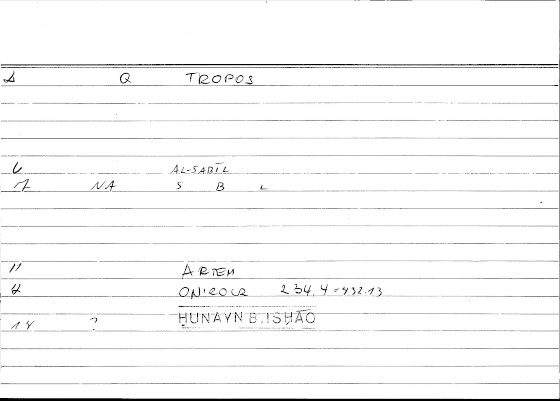 Δ Q TROPOS
6 AL-SABĪL
7 NA S B L
11 ARTEM
12 ONIROCR 234,4=432.13
14 ? ḤUNAYN B. ISḤĀQ